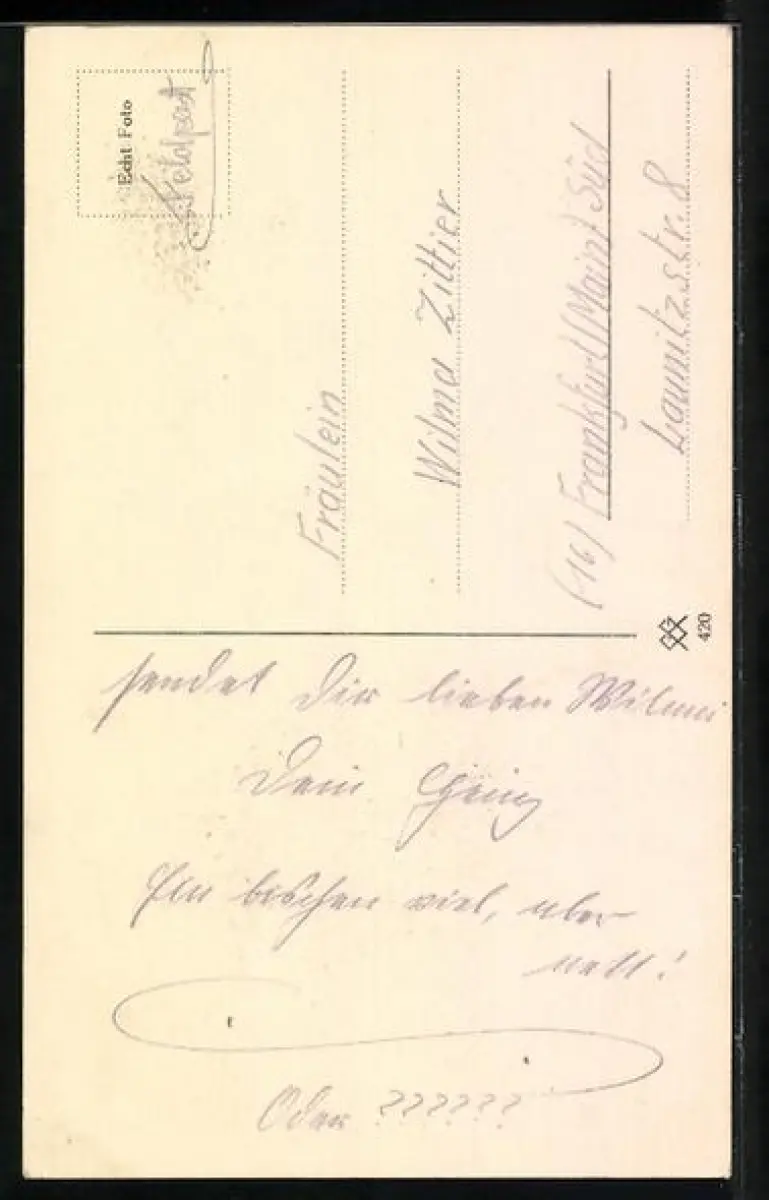 Echt Foto
Feldpost
Fräulein
Wilma Zittier
(16) Frankfurt/Main/Süd
Launitzstr. 8
420
sendet Dir lieben Wilmi
Dein Heinz
Ein bischen viel, aber
nett!
Oder ??????